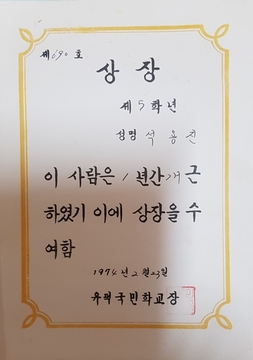 제690호
상장
제5학년
성명 석용진
이 사람은 1년간 개근
하였기 이에 상장을 수
여함
1974년 2월 23일
유덕국민학교장